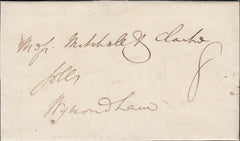 Messrs Mitchell & Clarke
8
Solrs
Wymondham